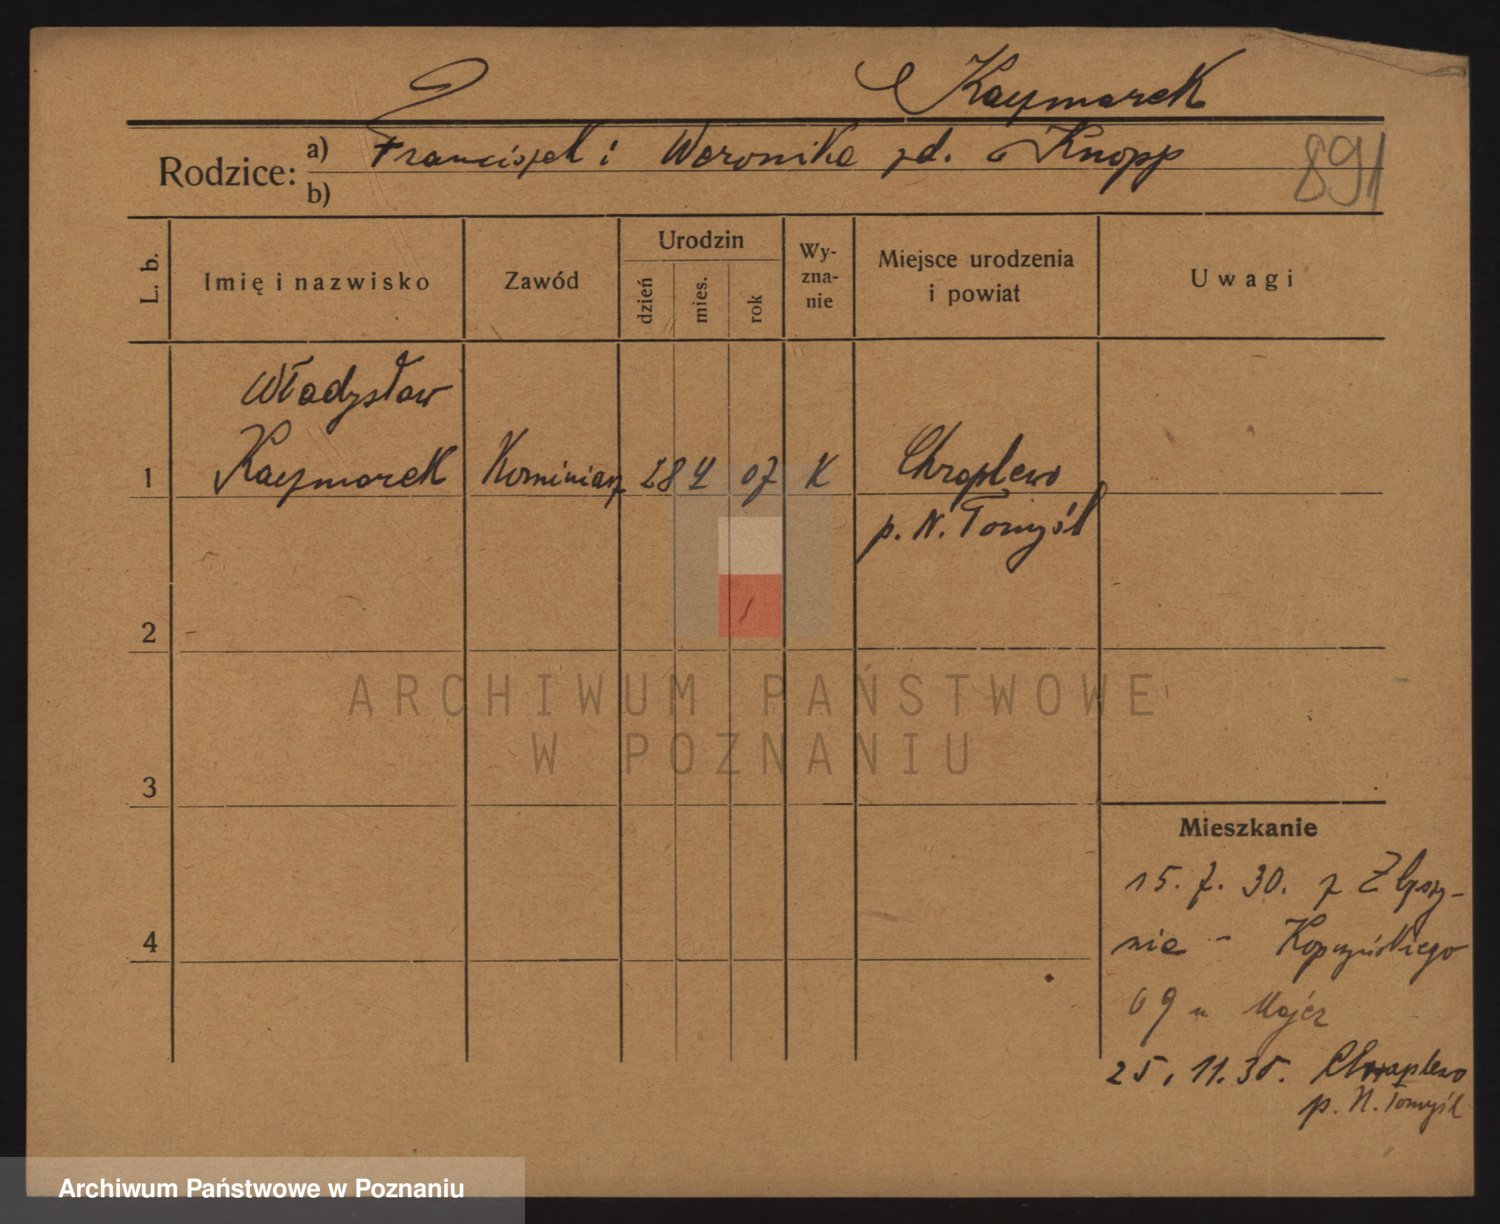 Kaczmarek
Rodzice: a) Franciszek i Weronika zd. Knopp
b)
891
L. b.
Imię i nazwisko
Zawód
Urodzin
dzień
mies.
rok
Wy-
zna-
nie
Miejsce urodzenia
i powiat
Uwagi
Władysław
1 Kaczmarek Kominiarz 28 4 07 K Chraplewo
p. N. Tomyśl
2
3
4
ARCHIWUM PAŃSTWOWE
W POZNANIU
Mieszkanie
15. 7. 30. z Zbąszy-
nia - Kopczyńskiego
69 u Majer
25. 11. 35. Chraplewo
p. N. Tomyśl
Archiwum Państwowe w Poznaniu